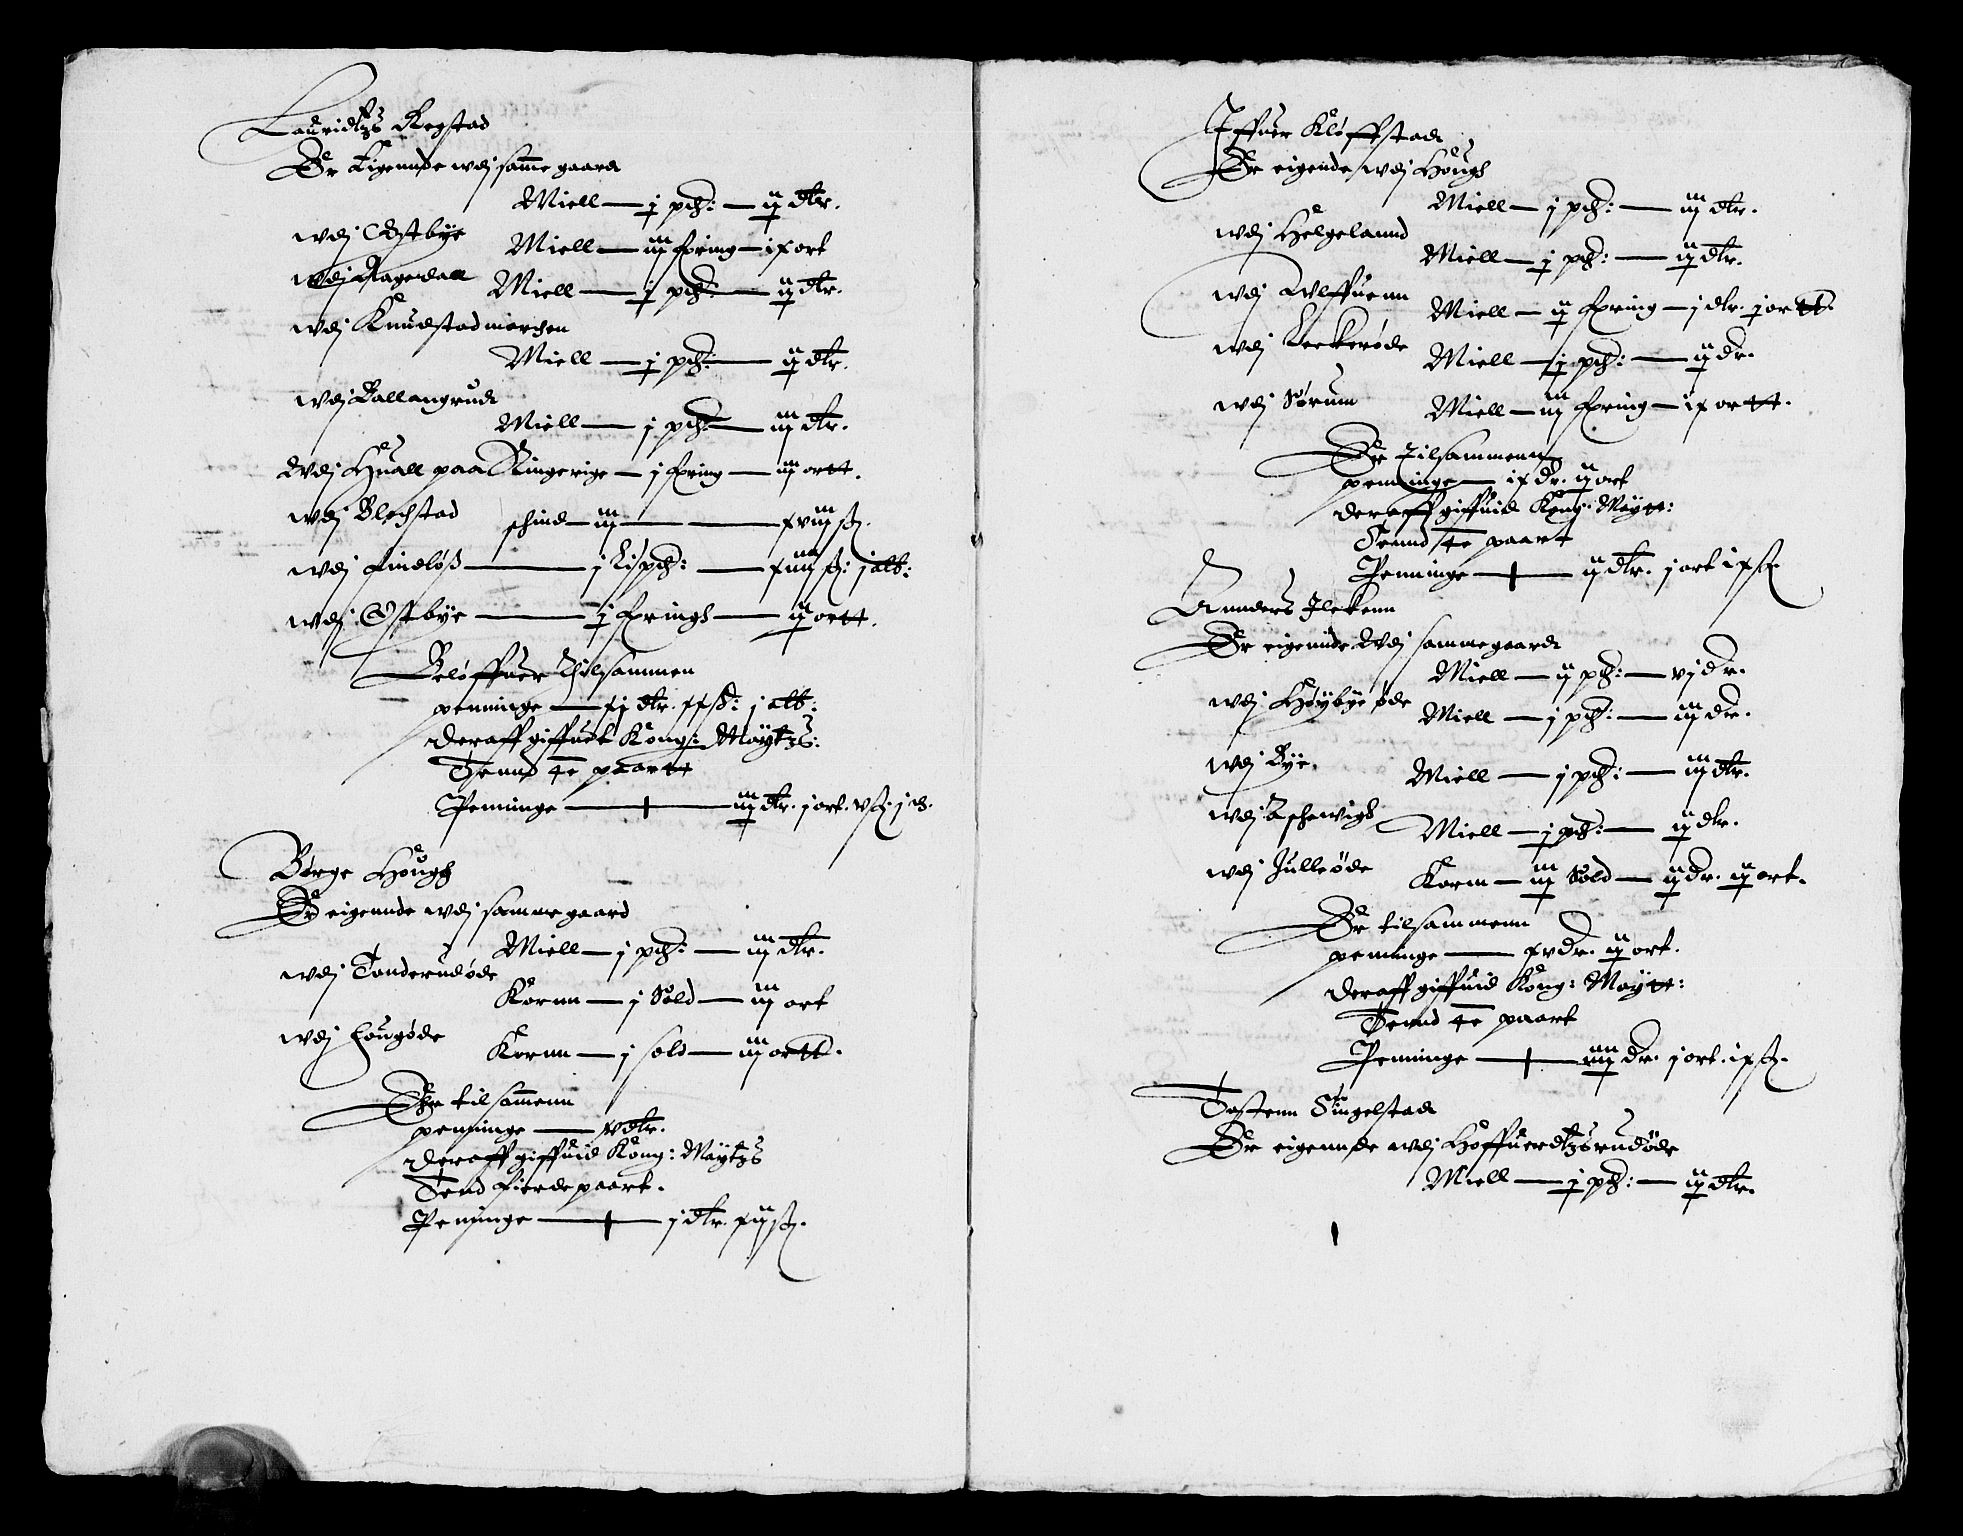 Lauridtzs Regstad
Er Eigennde wdj samme gaard
Miell — j pd: — ij dlr.
wdj Østbye Miell — iij fering — i½ ort
wdj Aagedall Miell — j pd: — ij dlr.
wdj Knudstad marchen
Miell — j pd: — ij dlr.
wdj Ballangrud
Miell — j pd: — iij dlr.
Wdj Huall paa Ringerige — j fring — iij ortt.
wdj Blegstad schind — iij — xviij sk.
wdj Lindløß — j Lispd: — xiiij sk: j alb:
wdj Østbye — j frings — ij ortt.
Beløffuer Thilsammen
peninge — xj dlr. xx sk: j alb:
deraff giffuet Kong: Maytzs:
Tennd 4e paartt
Peninge — iij dlr. j ort. v sk. j d.
Børge Hougs
Er eigennde wdj samme gaard
Miell — j pd: — iij dlr.
wdj Tanderudøde
Kornn — j Sold — iij ort
wdj Hougøde
Kornn — j sold — iij ortt.
Ehr tilsammenn
peninge — v dlr.
deraff giffuid Kong: Maytzs
Tend fierde paart.
Peninge — j dlr. xij sk.
Iffuer Kløffstad
Er eigende wdj Hougs
Miell — j pd: — iij dlr.
wdj Helgelannd
Miell — j pd: — ij dlr.
wdj Wlffuenn
Miell — ij fring — j dlr. j ortt
wdj Leckerøde
Miell — j pd: — ij dr.
wdj Sørum
Miell — iij fring — i½ ortt.
Er Tilsammenn
peninge — ix dr. ij ort
deraff giffuid Kong: Maytt:
Tennd 4e paart
Penninge — ij dlr. j ort ix sk.
Annders Ilekenn
Er eigennde Wdj samme gaard
Miell — ij pd: — vj dr.
wdj Høybye øde
Miell — j pd: — iij dr.
wdj Bye.
Miell — j pd: — iij dlr.
wdj Aschewigs
Miell — j pd: — ij dlr.
wdj Julleøde
Korn — iij Sold — ij dr. ij ort.
Er tilsammenn
peninge — xv dr. ij ort.
deraff giffuid Kong: Maytt:
Tennd 4e paart
Peninge — iiij dr. j ort. ix sk.
Tostenn Singelstad
Er eigennde wdj Hoffuerdtzrudøde
Miell — j pd: — ij dlr.